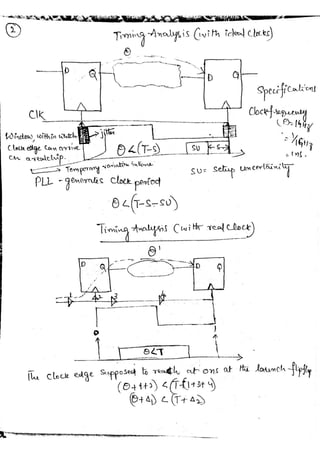 2
Timing Analysis (with ideal clocks)
Θ
D Q D Q
Specifications
Clk
Clock frequency
Window within which
jitter
Θ<(T-S)
SU
S
Clock edge can arrive
on a real chip.
Temporary variation in time
= 1ns.
SU = Setup uncertainity
PLL - generates clock period
Θ<(T-S-SU)
Timing Analysis (with real clock)
Θ'
D Q D Q
1 2 3 4
0
Θ<T
The clock edge supposed to reach at 0ns at the launch-flipflop
(Θ+1+2) < (T+1+3+4)
(Θ+Δ1) < (T+Δ2)